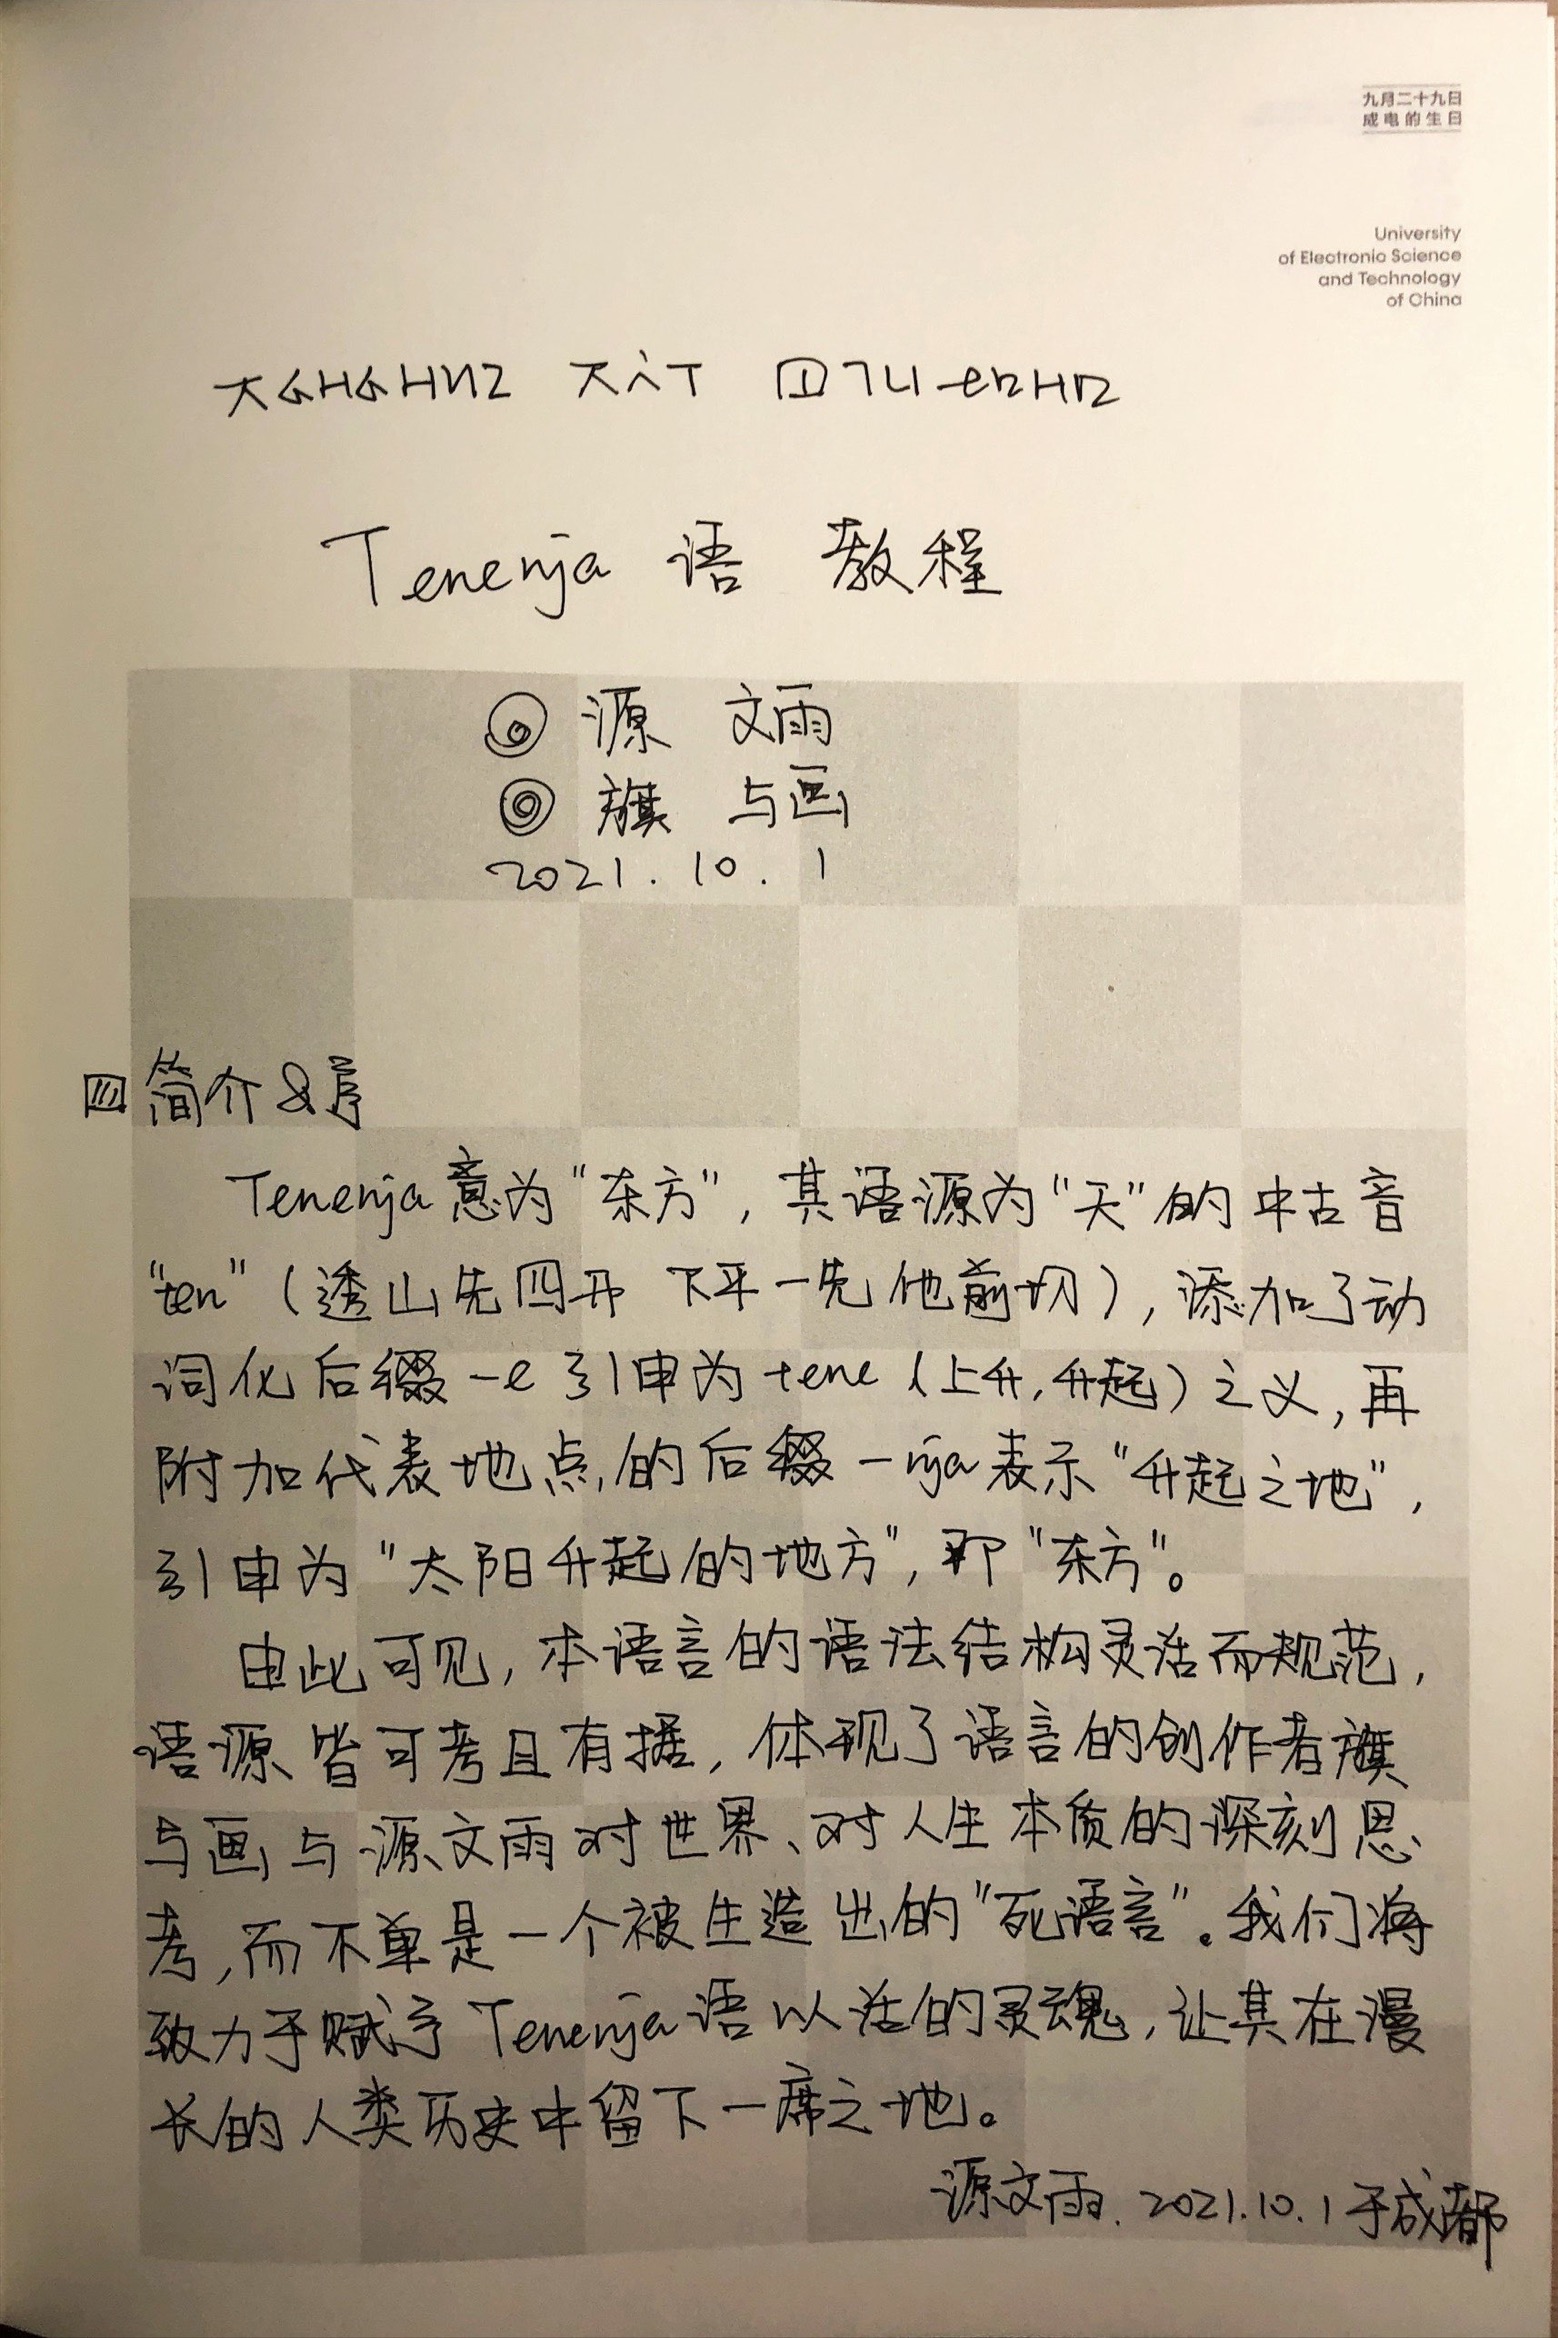 九月二十九日
成电的生日
University
of Electronic Science
and Technology
of China
Tenenja 语 教程
源 文雨
旗 与画
2021.10.1
简介&序
Tenenja意为“东方”，其语源为“天”的中古音
“ten”（透山先四开 下平一先 他前切），添加了动
词化后缀-e引申为tene（上升，升起）之义，再
附加代表地点的后缀-nja表示“升起之地”，
引申为“太阳升起的地方”，即“东方”。
由此可见，本语言的语法结构灵活而规范，
语源皆可考且有据，体现了语言的创作者旗
与画与源文雨对世界、对人生本质的深刻思
考，而不单是一个被生造出的“死语言”。我们将
致力于赋予Tenenja语以活的灵魂，让其在漫
长的人类历史中留下一席之地。
源文雨. 2021.10.1于成都